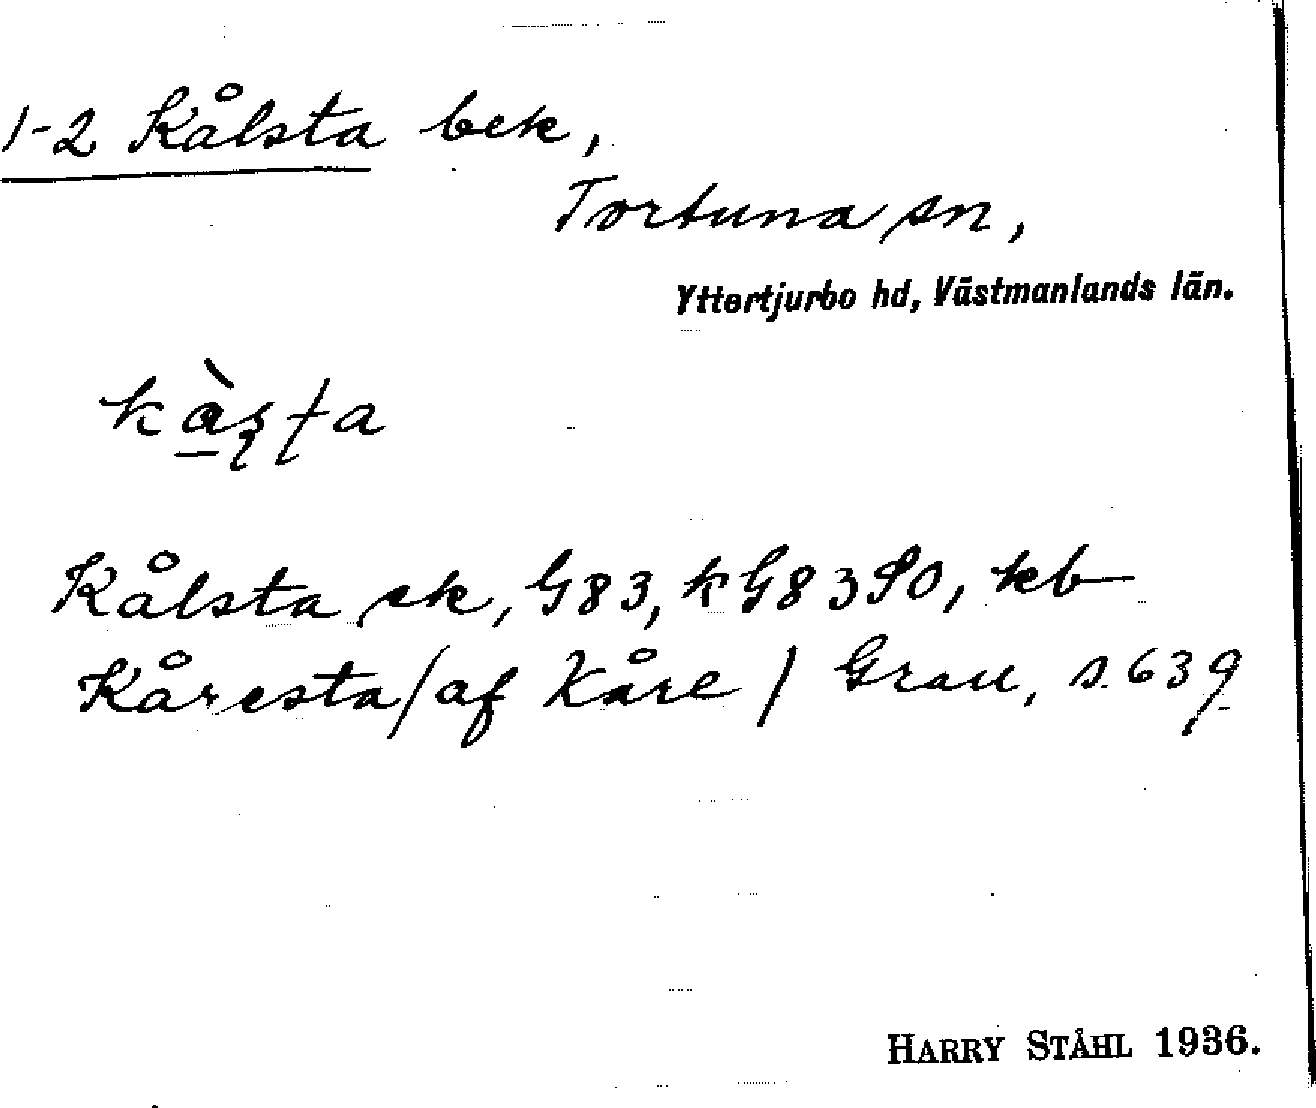 1-2 Kålsta bek,
Tortuna sn,
Yttertjurbo hd, Västmanlands län.
Kålsta ek, G83, k G83 SO, kb
Kåresta / af Kåre / Grau, s. 639
HARRY STÅHL 1936.